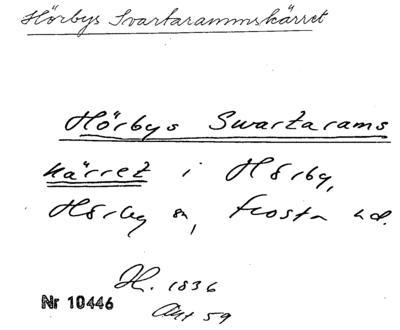 Hörbys Svartarammskärret
Hörbys Swartarams
kärret i Hörby,
Hörby sn, Frosta hd.
H. 1836
Nr 10446
Akt 59